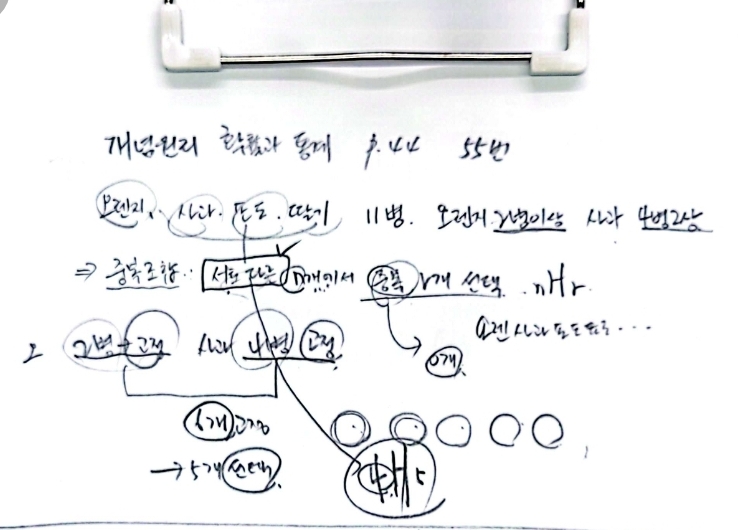 개념원리 확률과 통계 p.44 55번
오렌지, 사과, 포도, 딸기 11병. 오렌지 2병이상 사과 4병이상
⇒ 중복조합: 서로 다른 n개에서 중복 r개 선택. nHr.
오렌 사과 포도 포도 ...
0개
오 2병→고정 사과 4병 고정
6개 고정
→ 5개 선택
4H5